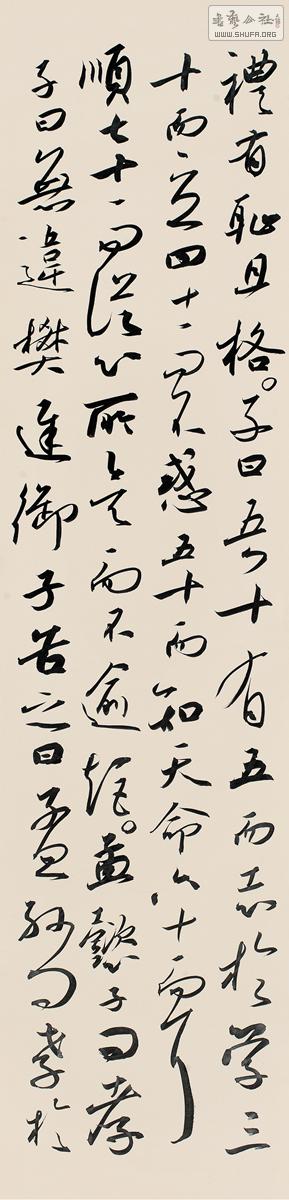 禮有恥且格。子曰吾十有五而志於学三
十而立四十而不惑五十而知天命六十而耳
順七十而從心所欲而不逾矩。孟懿子曰孝
子曰無違樊遲御子告之曰孟孫問孝於
书艺公社
WWW.SHUFA.ORG